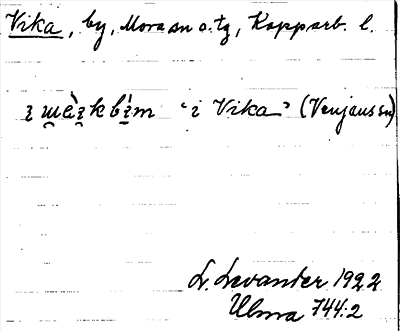 Vika, by, Mora sn o. tg, Kopparb. l.
“i Vika” (Venjans sn)
L. Levander 1922
Ulma 744:2